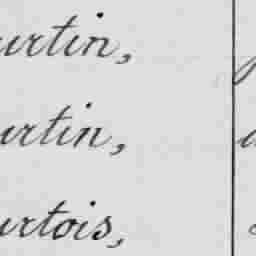 urtin,
urtin,
urtois,